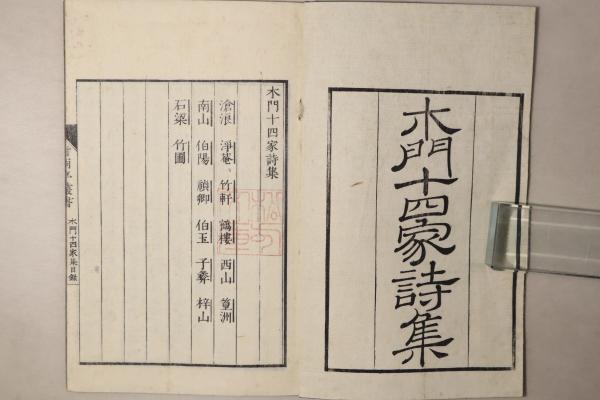 木門十四家詩集
木門十四家詩集
滄浪 淨菴、竹軒 鶴樓 西山 篁洲
南山 伯陽 禎卿 伯玉 子彝 梓山
石梁 竹圃
叢書 木門十四家集目録